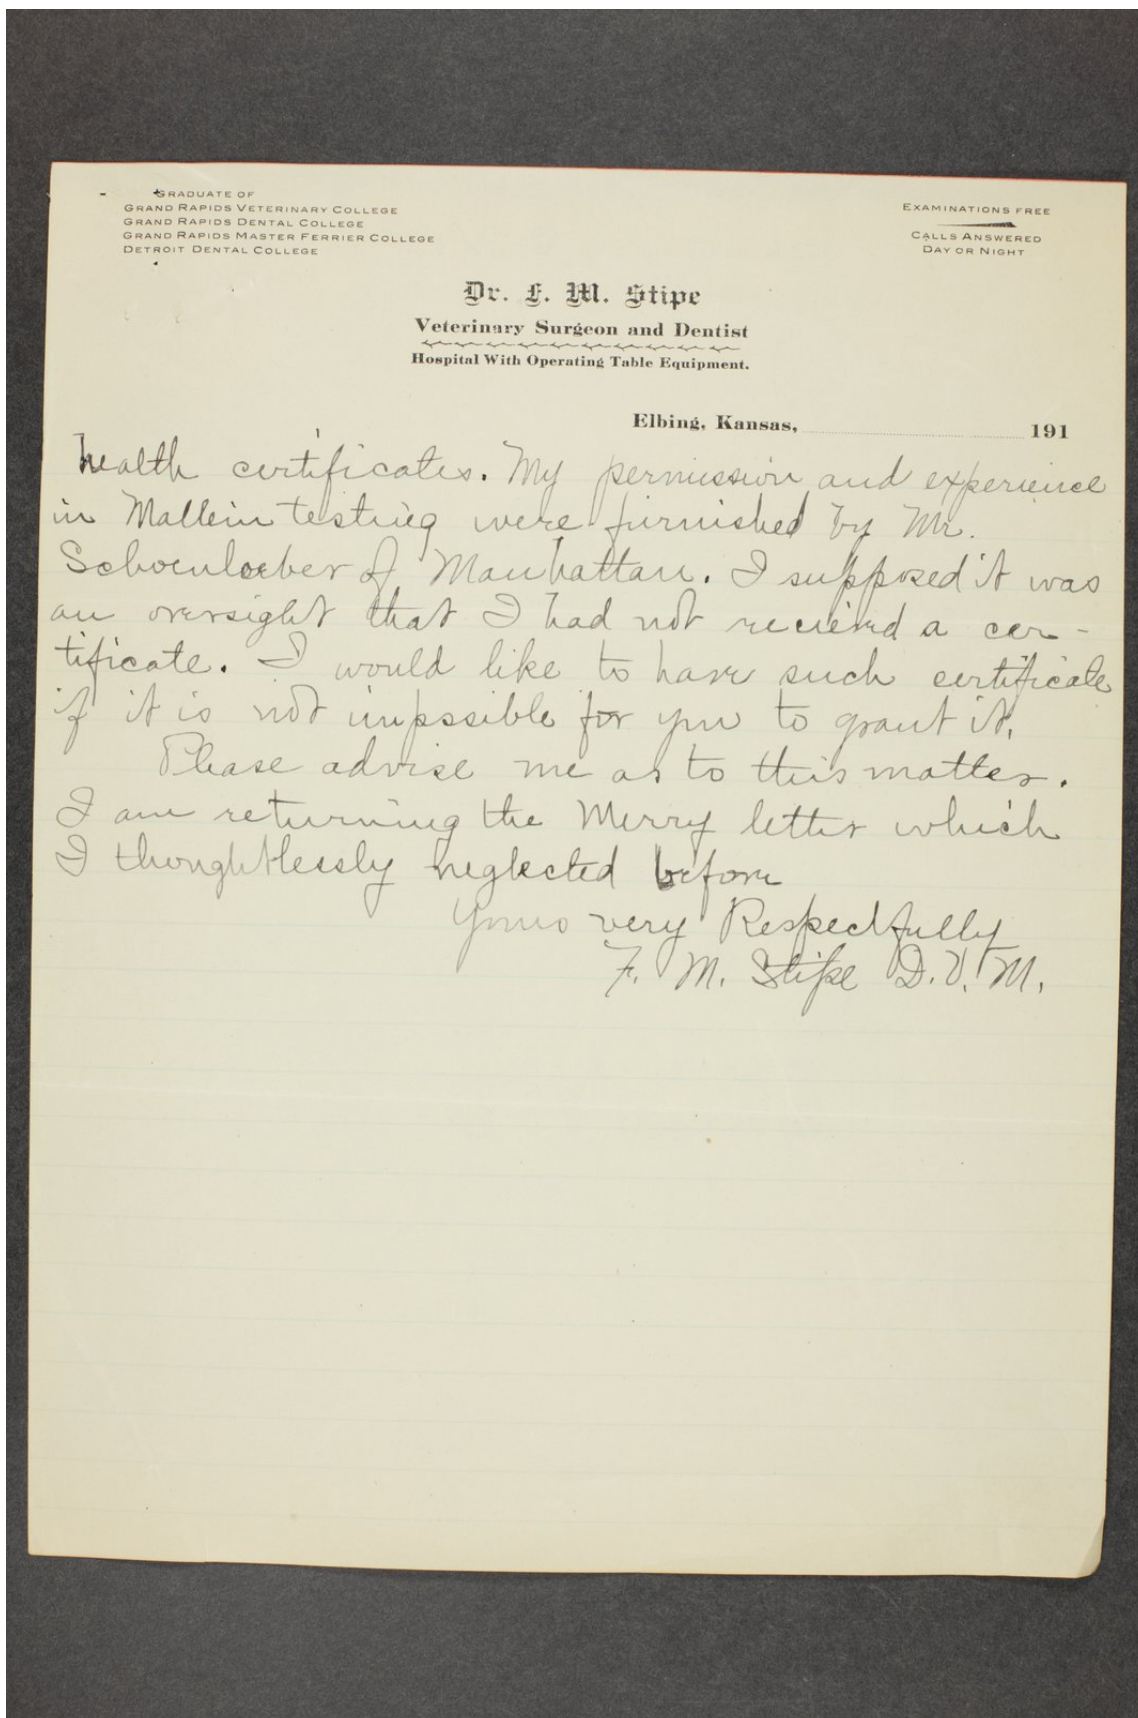 GRADUATE OF
GRAND RAPIDS VETERINARY COLLEGE
GRAND RAPIDS DENTAL COLLEGE
GRAND RAPIDS MASTER FERRIER COLLEGE
DETROIT DENTAL COLLEGE
EXAMINATIONS FREE
CALLS ANSWERED
DAY OR NIGHT
Dr. F. M. Stipe
Veterinary Surgeon and Dentist
Hospital With Operating Table Equipment.
Elbing, Kansas, 191
health certificates. My permission and experience
in Mallein testing were furnished by Mr.
Schoenloeber of Manhattan. I supposed it was
an oversight that I had not recieved a cer-
tificate. I would like to have such certificate
if it is not impssible for you to grant it.
Please advise me as to this matter.
I am returning the Merry letter which
I thoughtlessly neglected before
Yours very Respectfully
F. M. Stipe D.V.M.